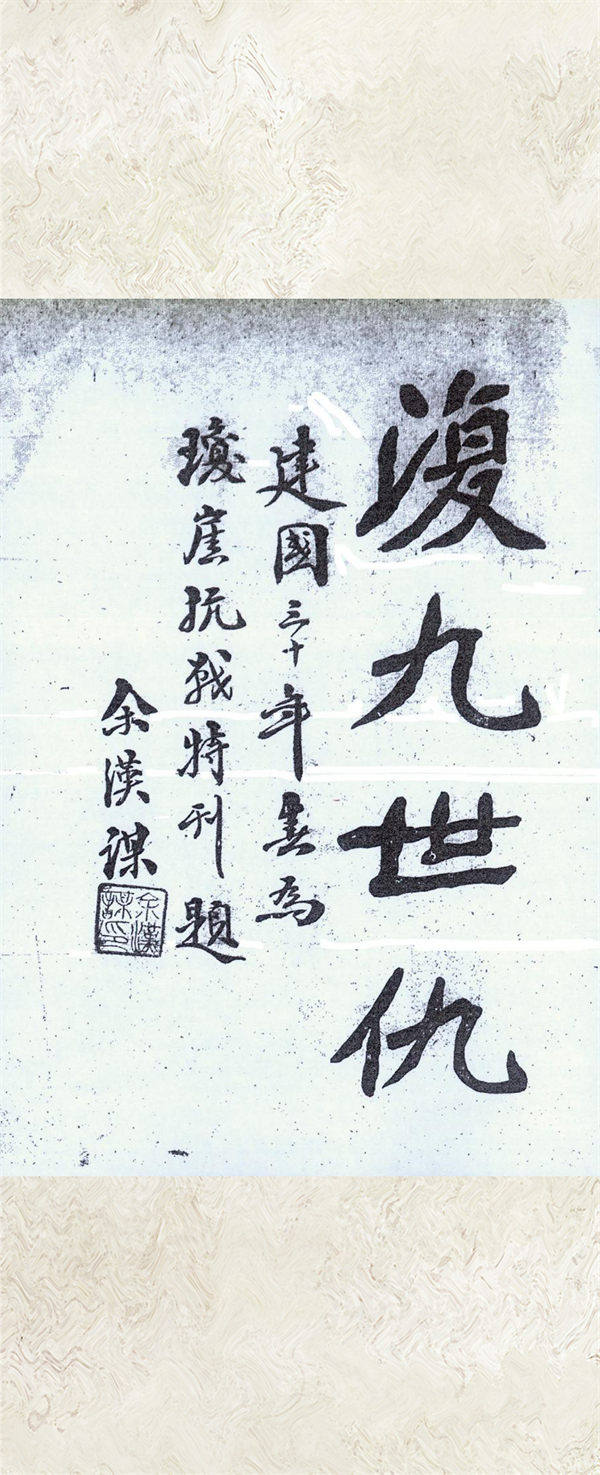 復九世仇
建國三十年春為
瓊崖抗戰特刊題
余漢謀
余漢謀印